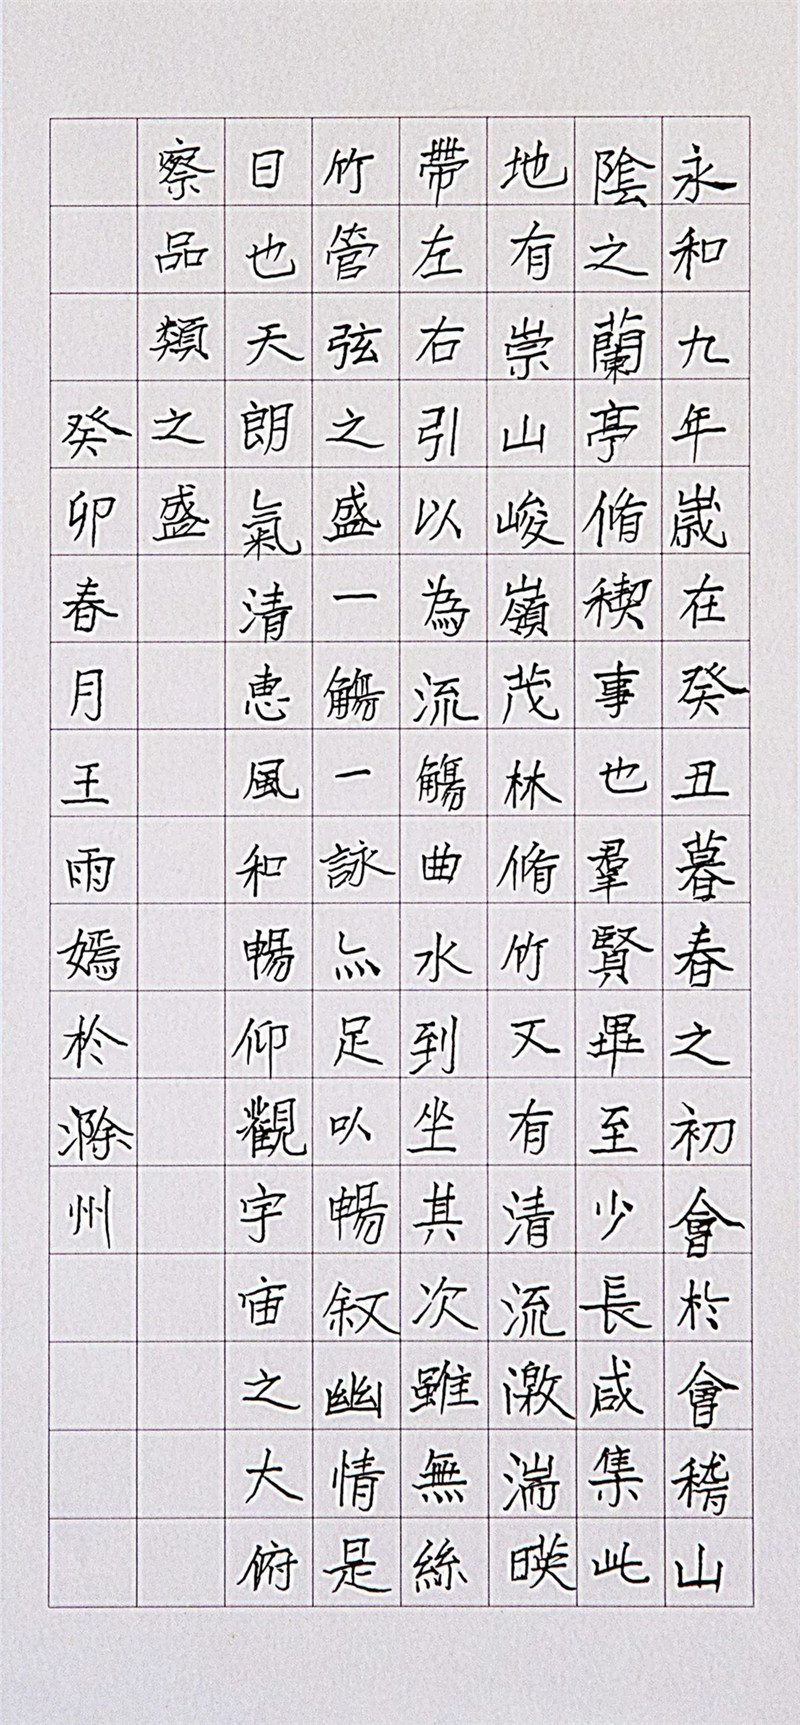 永和九年嵗在癸丑暮春之初會於會稽山
陰之蘭亭脩稧事也羣賢畢至少長咸集此
地有崇山峻嶺茂林脩竹又有清流激湍暎
帶左右引以為流觴曲水列坐其次雖無絲
竹管弦之盛一觴一詠亦足以暢叙幽情是
日也天朗氣清恵風和暢仰觀宇宙之大俯
察品類之盛
癸卯春月王雨嫣於滁州